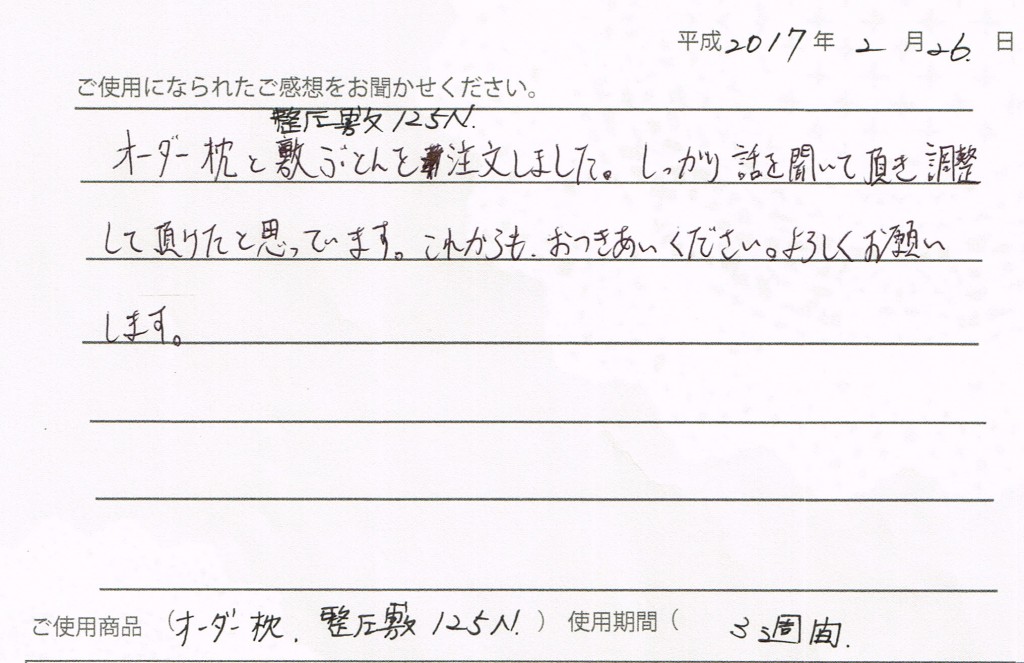 平成2017年 2月26.日
ご使用になられたご感想をお聞かせください。
整圧敷125N.
オーダー枕と敷ぶとんを注文しました。しっかり話を聞いて頂き調整
して頂けたと思っています。これからも、おつきあいください。よろしくお願い
します。
ご使用商品 (オーダー枕、整圧敷125N.) 使用期間( 3週間.